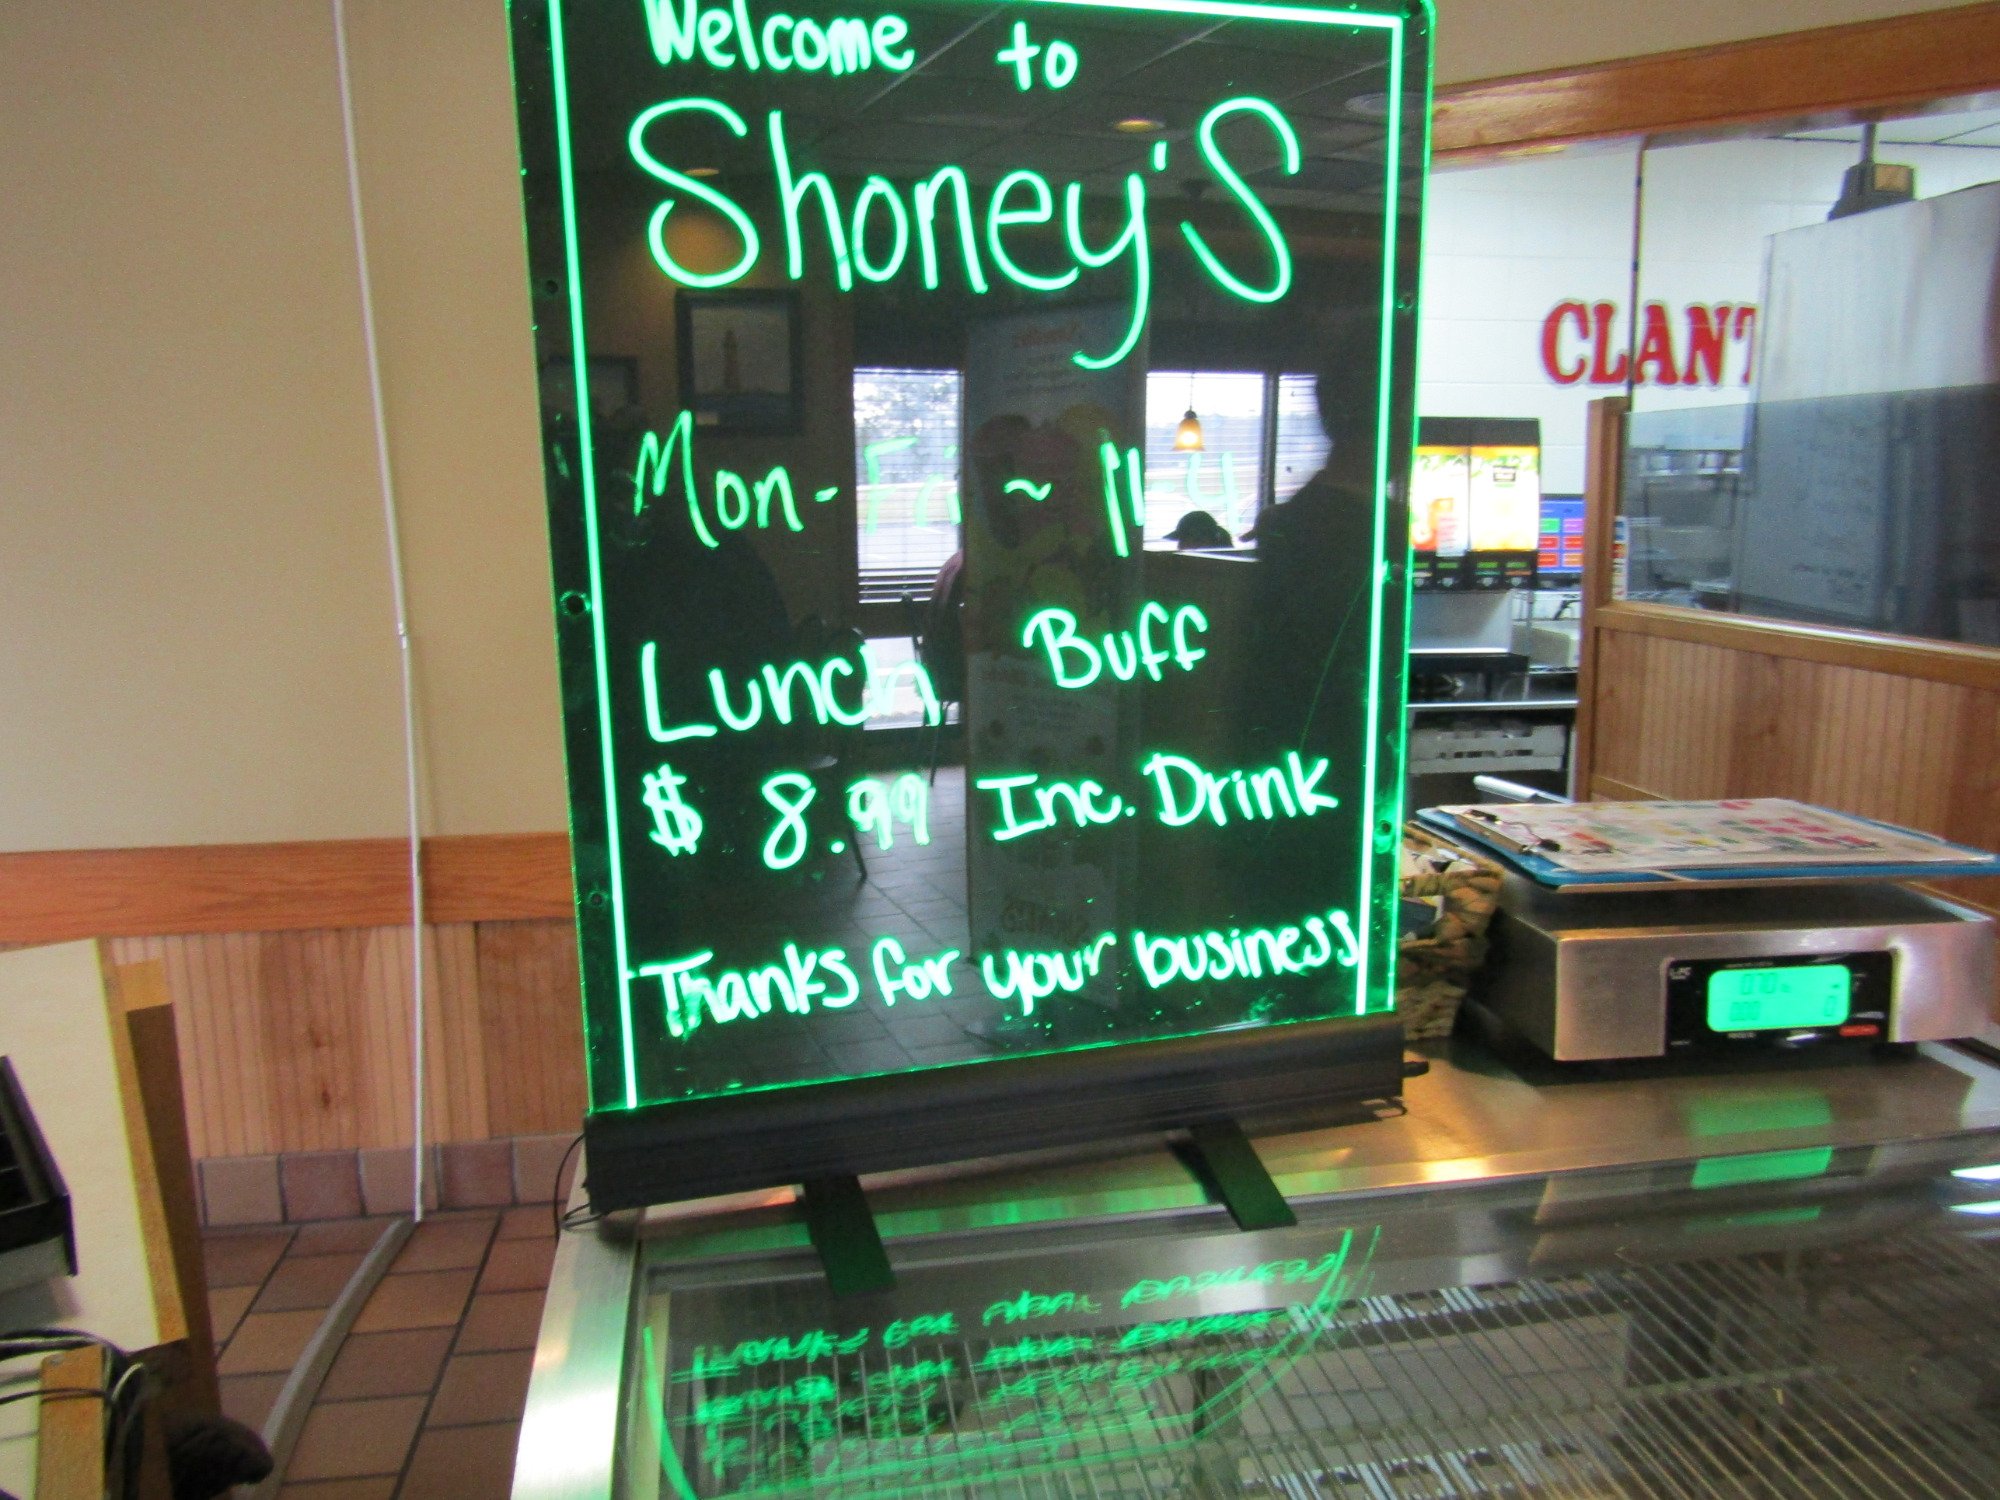 Welcome to
Shoney's
Mon-Fri ~ 11-4
Lunch Buff
$ 8.99 Inc. Drink
Thanks for your business
CLANT